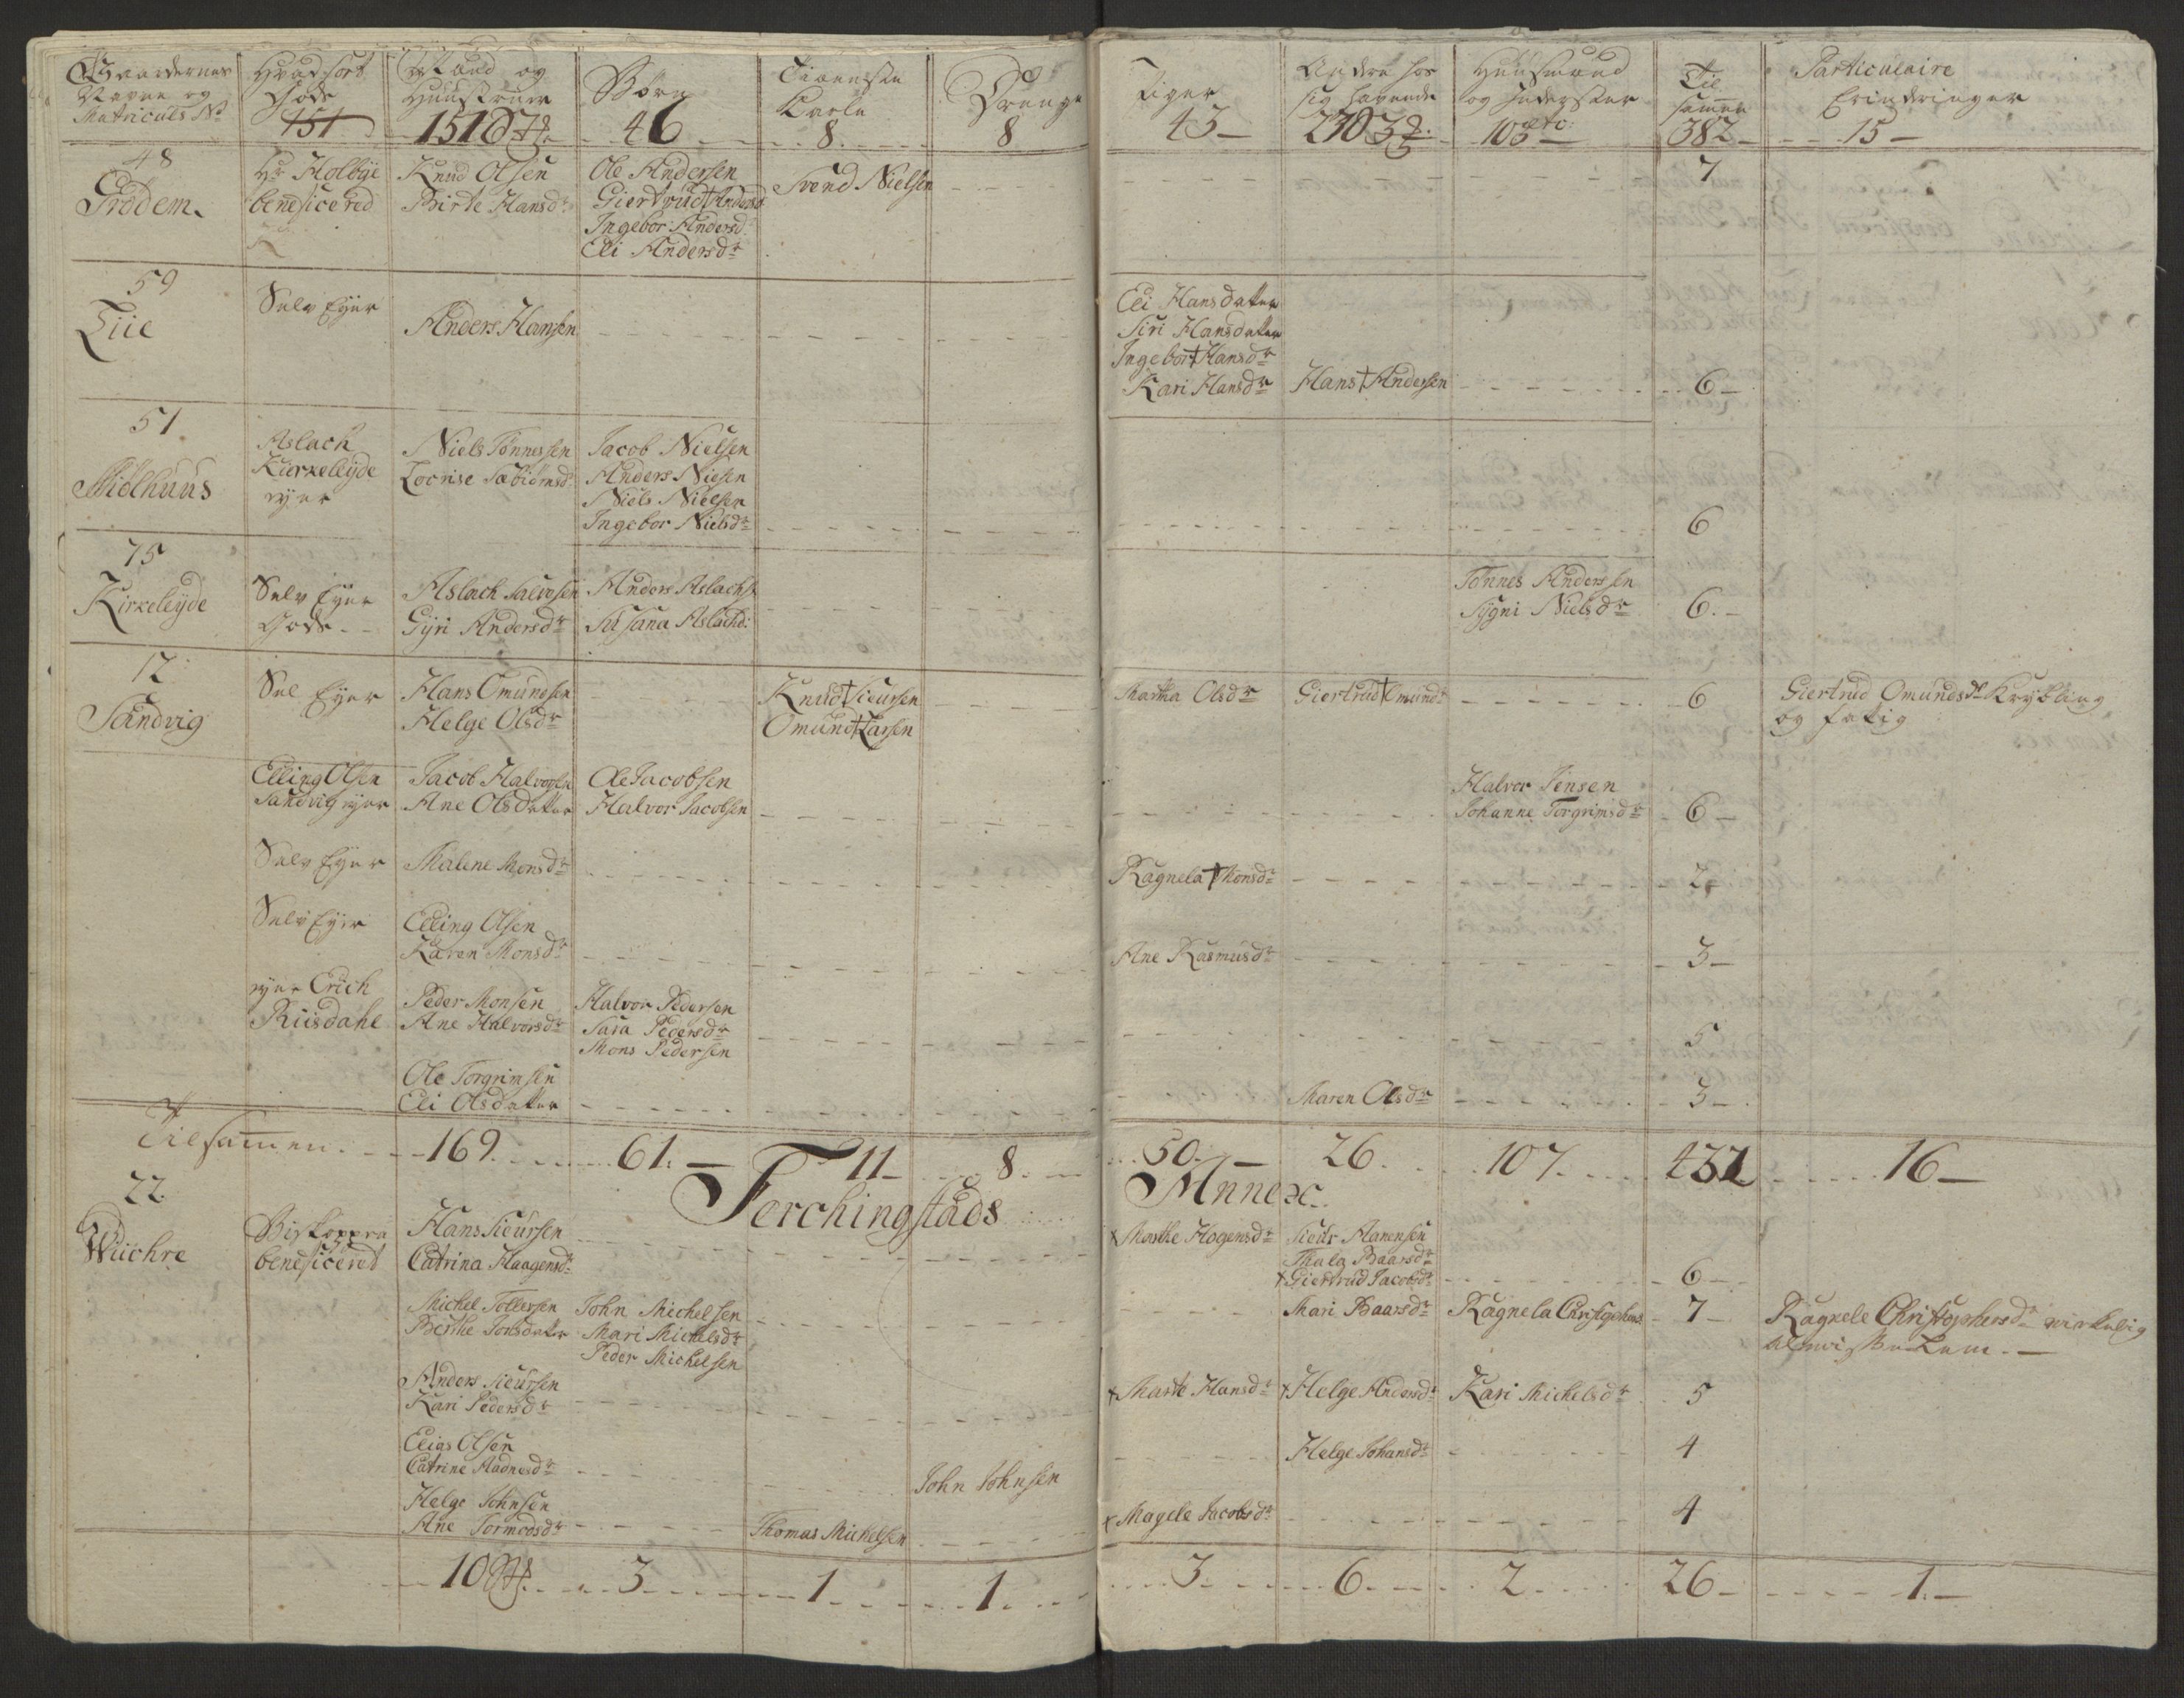 Gaardernes
Navne og
Matriculs No
Hvad sort
Gods
151
Mænd og
Huustruer
151
Børn
46
Tieneste
Karle
8
Drenge
8
Piger
43
Andre hos
sig havende
23
Huusmænd
og Inderster
etc:
105
Til
sammen
382
Particulaire
Erindringer
15
48
Frødem.
Hr Holbye
beneficered
Knud Olsen
Birte Hansdr
Ole Andersen
Giertrud Andersd
Ingebor Andersd
Eli Andersdr
Svend Nielsen
7
59
Lie
Selv Eyer
Anders Hansen
Eli Hansdatter
Siri Hansdatter
Ingebor † Hansdr
Kari Hansdr
Hans † Andersen
6
51
Midhuus
Aslach
Kirkeleyde
eyer
Niels Tønnessen
Jacob Nielsen
Anders Nielsen
Niels Nielsen
Ingebor Nielsdr
6
75
Kirkeleyde
Selv Eyer
Gods
Aslach Salvesen
Gyri Andersdr
Anders Aslachs
Susana Aslachd:
Tønnes Andersen
Sygni Nielsdr
6
12
Sandvig
Sel Eyer
Hans Omundsen
Helge Olsdr
Knud † Sieursen
Omund † Larsen
Martha Olsdr
Giertrud † Omundr
6
Giertrud Omundsdr Krybling
og fatig
Elling Olsen
Sandvig eyer
Jacob Halvorsen
Ane Olsdatter
Ole Jacobsen
Halvor Jacobsen
Halvor Jensen
Johanne Torgrimsdr
6
Selv Eyer
Malene Monsdr
Ragnela † Monsdr
2
Selv Eyer
Elling Olsen
Karen Monsdr
Ane Rasmusdr
3
eyer Erich
Riisdahl
Peder Monsen
Ane Halvorsdr
Halvor Pedersen
Sara Pedersdr
Mons Pedersen
5
Ole Torgrimsen
Eli Olsdatter
Maren Olsdr
3
Tilsamen
169
61
11
8
50
26
107
432
16
Ferchingstads Annex
22
Wiichre
Biskoppen
beneficeret
Hans Sieursen
Catrina Haagensdr
x Marthe Hogensdr
Sieur Hanensen
Thala Baarsdr
x Giertrud Jacobsdr
6
Michel Tollevsen
Berthe Jonsdatter
John Michelsen
Mari Michelsdr
Peder Michelsen
Mari Baarsdr
Ragnela Christophers
7
Ragnele Christophersdr
Anders Sieursen
Kari Pedersdr
x Marte Hansdr
x Helge Andersdr
Kari Michelsdr
5
Elias Olsen
Catrine Aadnesdr
Helge Johansdr
4
John Johnsen
Helge Johnsen
Ane Tormodsdr
Thomas Michelsen
x Magele Jacobsdr
4
10
3
1
1
3
6
2
26
1